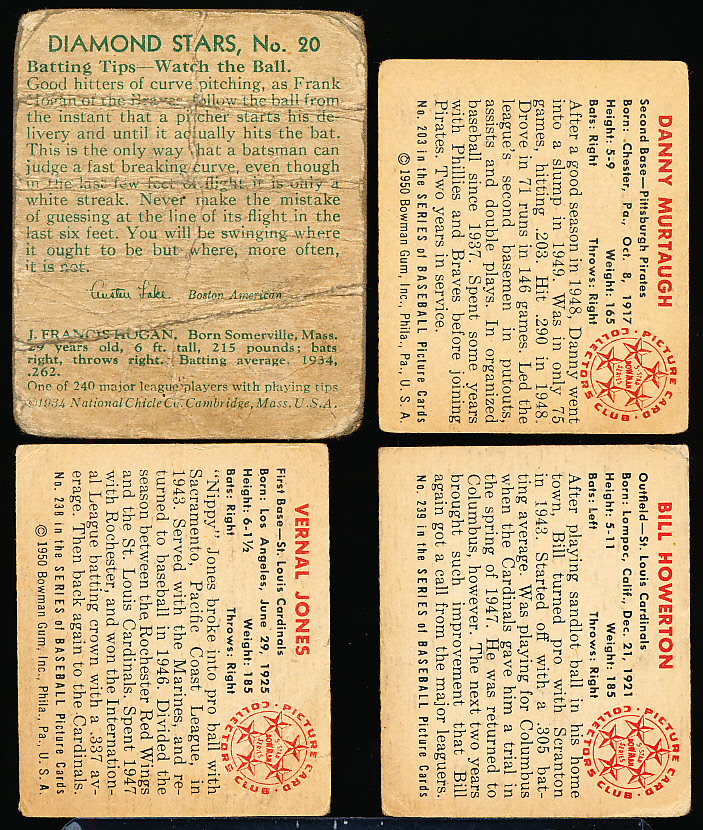 DIAMOND STARS, No. 20
Batting Tips—Watch the Ball.
Good hitters of curve pitching, as Frank
Hogan of the Braves, follow the ball from
the instant that a pitcher starts his de-
livery and until it actually hits the bat.
This is the only way that a batsman can
judge a fast breaking curve, even though
in the last few feet of flight it is only a
white streak. Never make the mistake
of guessing at the line of its flight in the
last six feet. You will be swinging where
it ought to be but where, more often,
it is not.
Austen Lake Boston American
J. FRANCIS HOGAN. Born Somerville, Mass.
29 years old, 6 ft. tall, 215 pounds; bats
right, throws right. Batting average, 1934,
.262.
One of 240 major league players with playing tips
©1934 National Chicle Co. Cambridge, Mass. U.S.A.
DANNY MURTAUGH
Second Base—Pittsburgh Pirates
Born: Chester, Pa., Oct. 8, 1917
Height: 5-9 Weight: 165
Bats: Right Throws: Right
After a good season in 1948, Danny went
into a slump in 1949. Was in only 75
games, hitting .203. Hit .290 in 1948.
Drove in 71 runs in 146 games. Led the
league's second basemen in putouts,
assists and double plays. In organized
baseball since 1937. Spent some years
with Phillies and Braves before joining
Pirates. Two years in service.
No. 203 in the SERIES of BASEBALL Picture Cards
© 1950 Bowman Gum, Inc., Phila., Pa., U. S. A.
PICTURE CARD COLLECTORS CLUB
5-STAR
BOWMAN
SERIES
VERNAL JONES
First Base—St. Louis Cardinals
Born: Los Angeles, June 29, 1925
Height: 6-1½ Weight: 185
Bats: Right Throws: Right
"Nippy" Jones broke into pro ball with
Sacramento, Pacific Coast League, in
1943. Served with the Marines, and re-
turned to baseball in 1946. Divided the
season between the Rochester Red Wings
and the St. Louis Cardinals. Spent 1947
with Rochester, and won the Internation-
al League batting crown with a .337 av-
erage. Then back again to the Cardinals.
No. 238 in the SERIES of BASEBALL Picture Cards
© 1950 Bowman Gum, Inc., Phila., Pa., U. S. A.
PICTURE CARD COLLECTORS CLUB
5-STAR
BOWMAN
SERIES
BILL HOWERTON
Outfield—St. Louis Cardinals
Born: Lompoc, Calif., Dec. 21, 1921
Height: 5-11 Weight: 185
Bats: Left Throws: Right
After playing sandlot ball in his home
town, Bill turned pro with Scranton
in 1943. Started off with a .305 bat-
ting average. Was playing for Columbus
when the Cardinals gave him a trial in
the spring of 1947. He was returned to
Columbus, however. The next two years
brought such improvement that Bill
again got a call from the major leaguers.
No. 239 in the SERIES of BASEBALL Picture Cards
© 1950 Bowman Gum, Inc., Phila., Pa., U. S. A.
PICTURE CARD COLLECTORS CLUB
5-STAR
BOWMAN
SERIES